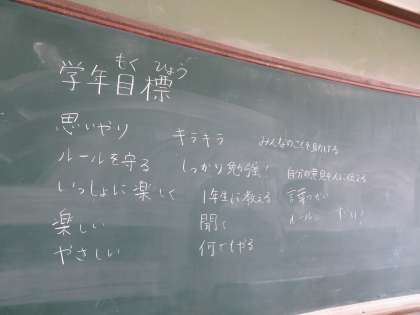 もくひょう
学年目標
思いやり
ルールを守る
いっしょに楽しく
楽しい
やさしい
キラキラ
しっかり勉強！
1年生に教える
聞く
何でもやる
みんなのことを助ける
自分の意見を人に伝える
言葉づかい